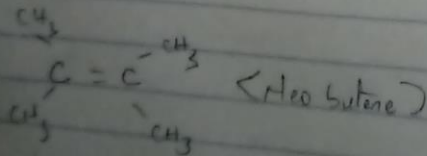 CH3
C = C CH3 <Neo butene>
CH3
CH3